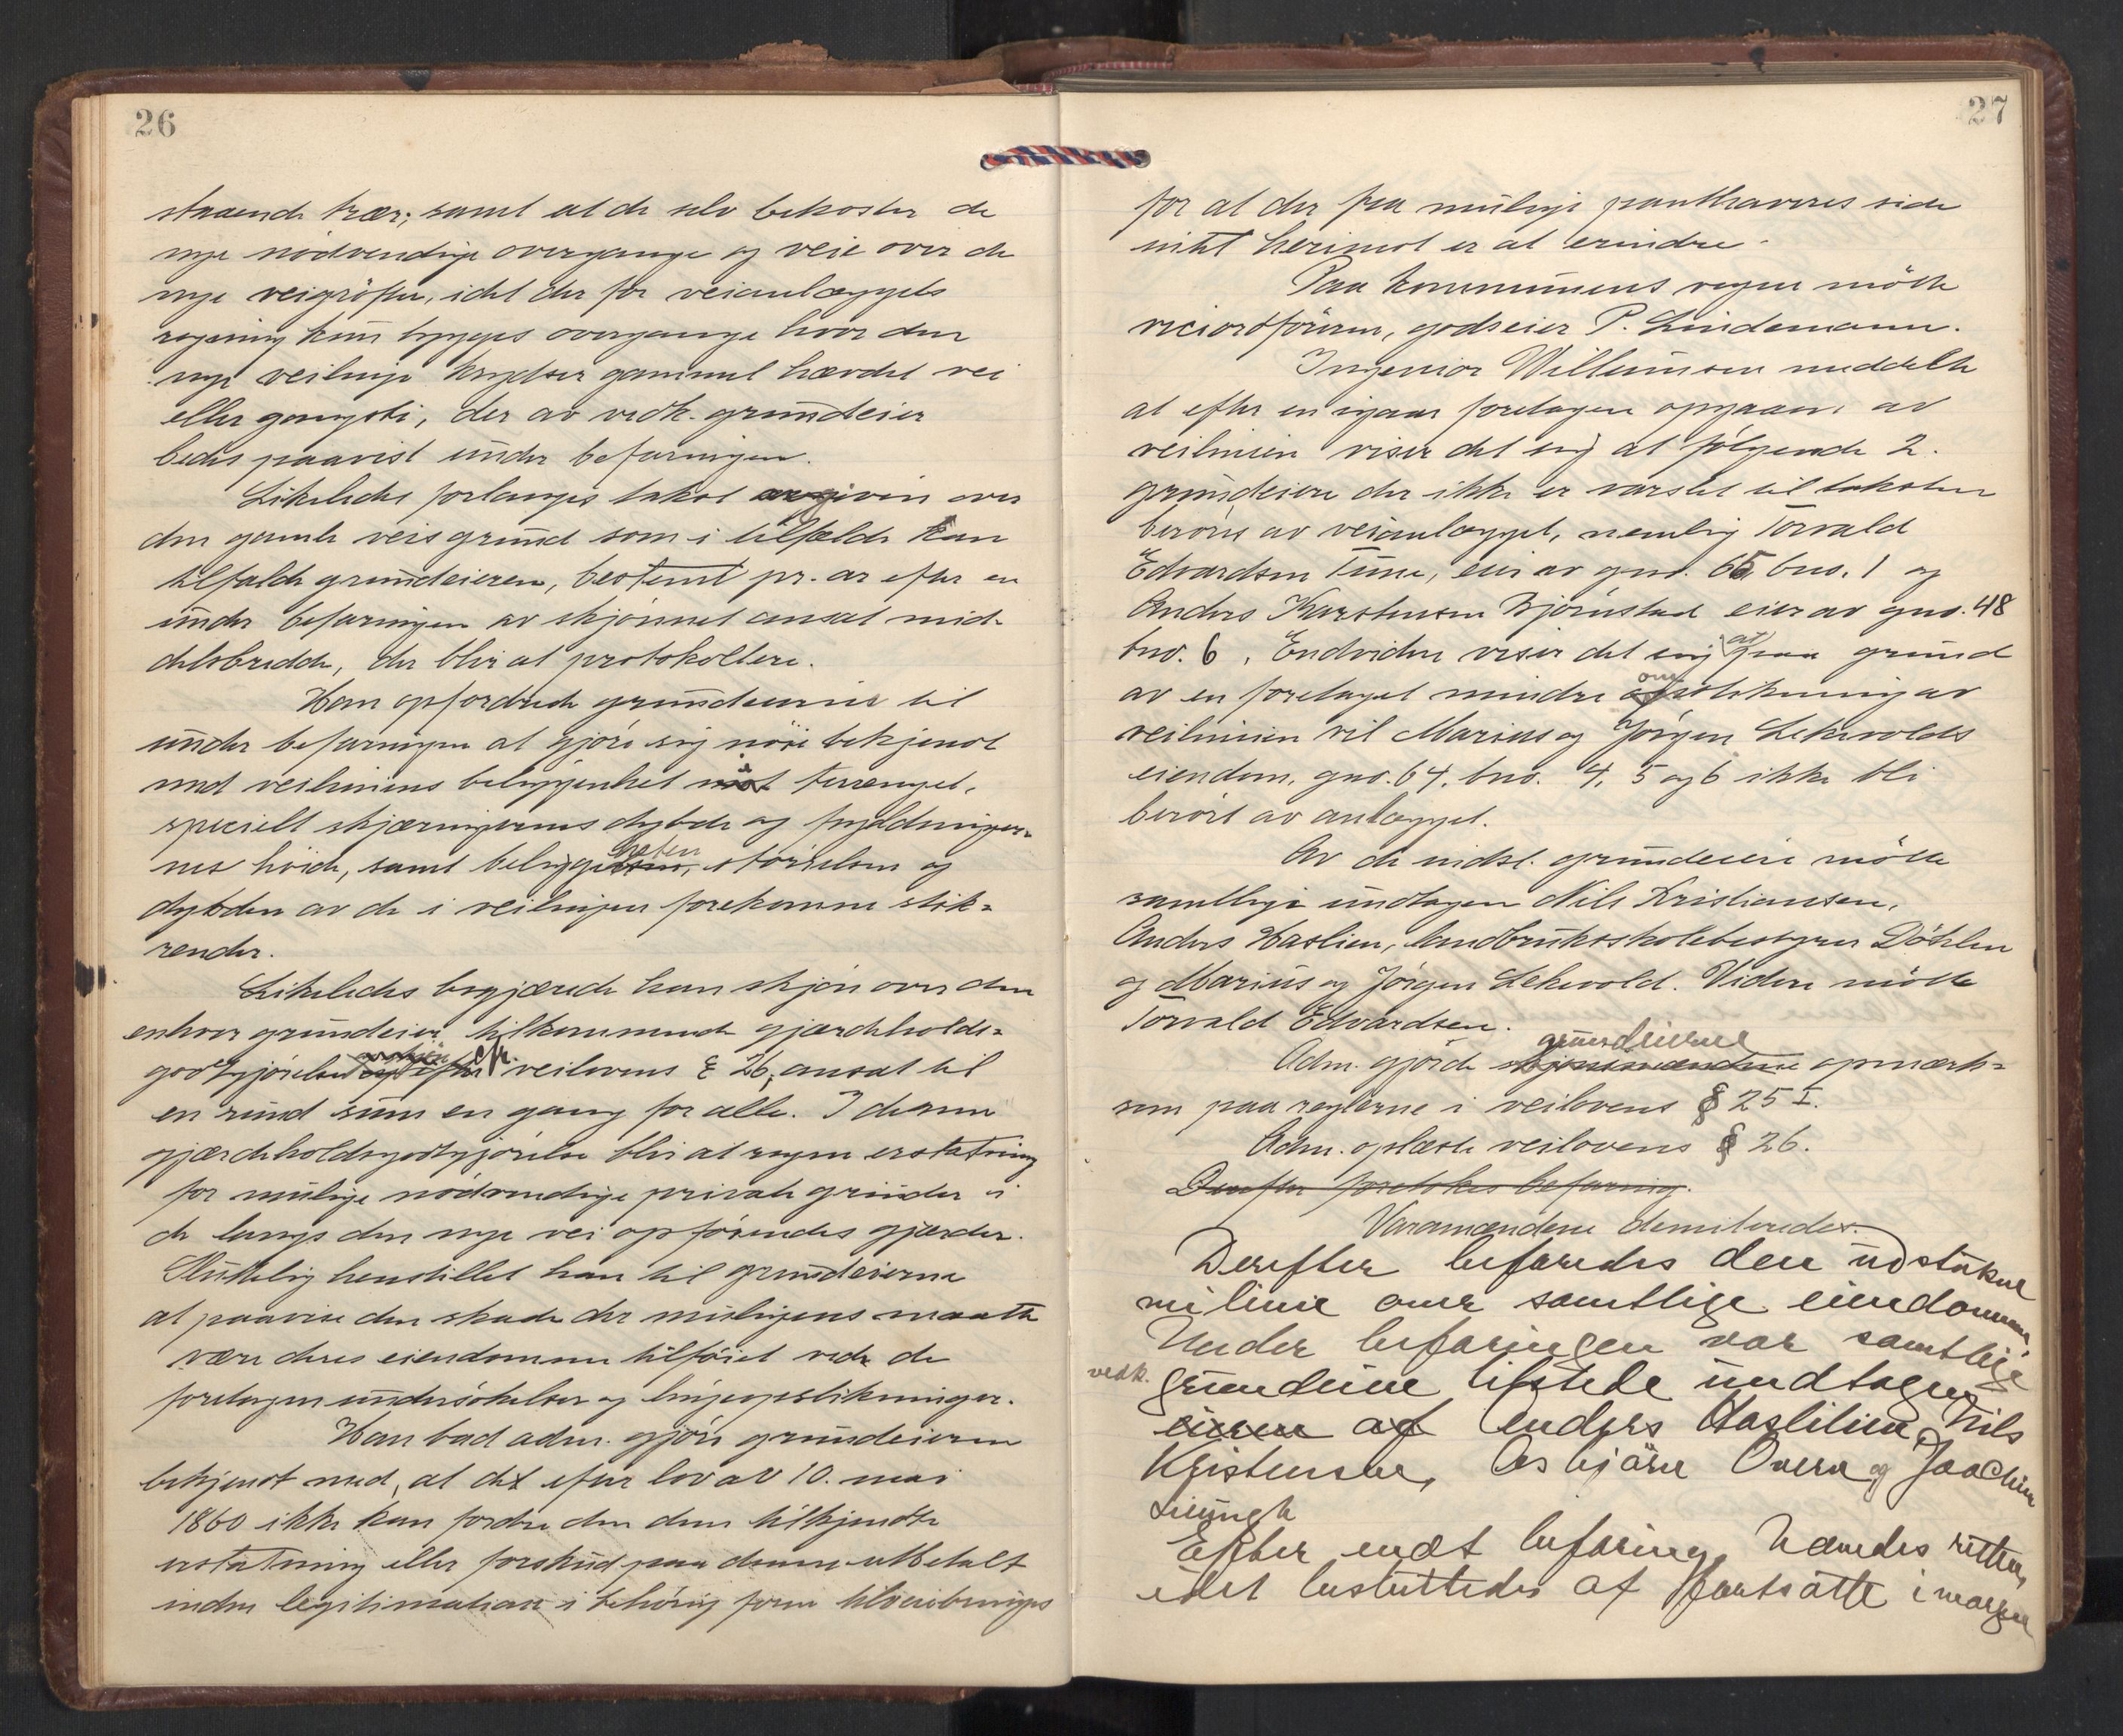 26
staaende trær, samt at de selv bekoster de
nye nödvendige overgange og veie over de
nye veigröfter, idet der for veianlæggets
regning kun bygges overgange hvor den
nye veilinje krydser gammel hævdet vei
eller gangsti, der av vedk. grundeier
bedes paavist under befaringen.
Likeledes forlanges takst avgiven over
den gamle veis grund som i tilfælde kan
tilfalde grundeieren, bestemt pr. ar efter en
under befaringen av skjönnet ansat mid-
delsbredde, der blir at protokollere.
Han opfordrede grundeierne til
under befaringen at gjöre sig nöie bekjendt
med veiliniens beliggenhet i terrænget,
specielt skjæringernes dybde og fyldninger-
nes höide, samt beliggenheten, störrelsen og
dybden av de i veilinjen forekomne stik-
render.
Likeledes begjærede han skjön over den
enhver grundeier tilkommende gjærdeholds-
godtgjörelse cfr. veilovens § 26, ansat til
en rund sum en gang for alle. I denne
gjærdeholdsgodtgjörelse blir at regne erstatning
for mulige nödvendige private grinder i
de langs den nye vei opförendes gjærder.
Slutelig henstillet han til grundeierne
at paavise den skade der muligens maatte
være deres eiendomme tilföiet ved de
foretagne undersökelser og linjeopstikninger.
Han bad adm. gjöre grundeierne
bekjendt med, at de efter lov av 10. mai
1860 ikke kan fordre den dem tilkjendte
erstatning eller forskud paa denne utbetalt
inden legitimation i behörig form tilveiebringes
27
for at der fra mulige panthaveres side
intet herimot er at erindre.
Paa kommunens vegne mötte
viceordföreren, godseier P. Lindemann.
Ingeniör Willumsen meddelte
at efter en igaar foretagen opgaaing av
veilinien viser det sig at fölgende 2
grundeiere der ikke er varslet til taksten
beröres av veianlægget, nemlig Torvald
Edvardsen Tune, eier av gno. 65 bno. 1 og
Anders Karstensen Bjørnstad eier av gno. 48
bno. 6. Endvidere viser det sig at paa grund
av en foretaget mindre omstikning av
veilinien vil Marius og Jörgen Lekevolds
eiendom, gno. 64, bno. 4, 5 og 6 ikke bli
berört av anlægget.
Av de indst. grundeiere mötte
samtlige undtagen Nils Kristiansen,
Anders Haslien, landbruksskolebestyrer Döhlen
og Marius og Jörgen Lekevold. Videre mötte
Torvald Edvardsen.
grundeierne
Adm. gjorde skjönsmændene opmærk-
som paa reglerne i veilovens § 25 I.
Adm. oplæste veilovens § 26.
Derefter foretokes befaring.
Varamændene demiteredes.
Derefter befaredes den udstukne
veilinie over samtlige eiendomme
Under befaringen var samtlige
vedk.
grundeiere tilstede undtagen
eieren af Anders Haslilien, Nils
Kristensen, Asbjörn Overn og Joachim
Efter endt befaring hævedes retten,
idet besluttedes at fortsætte imorgen